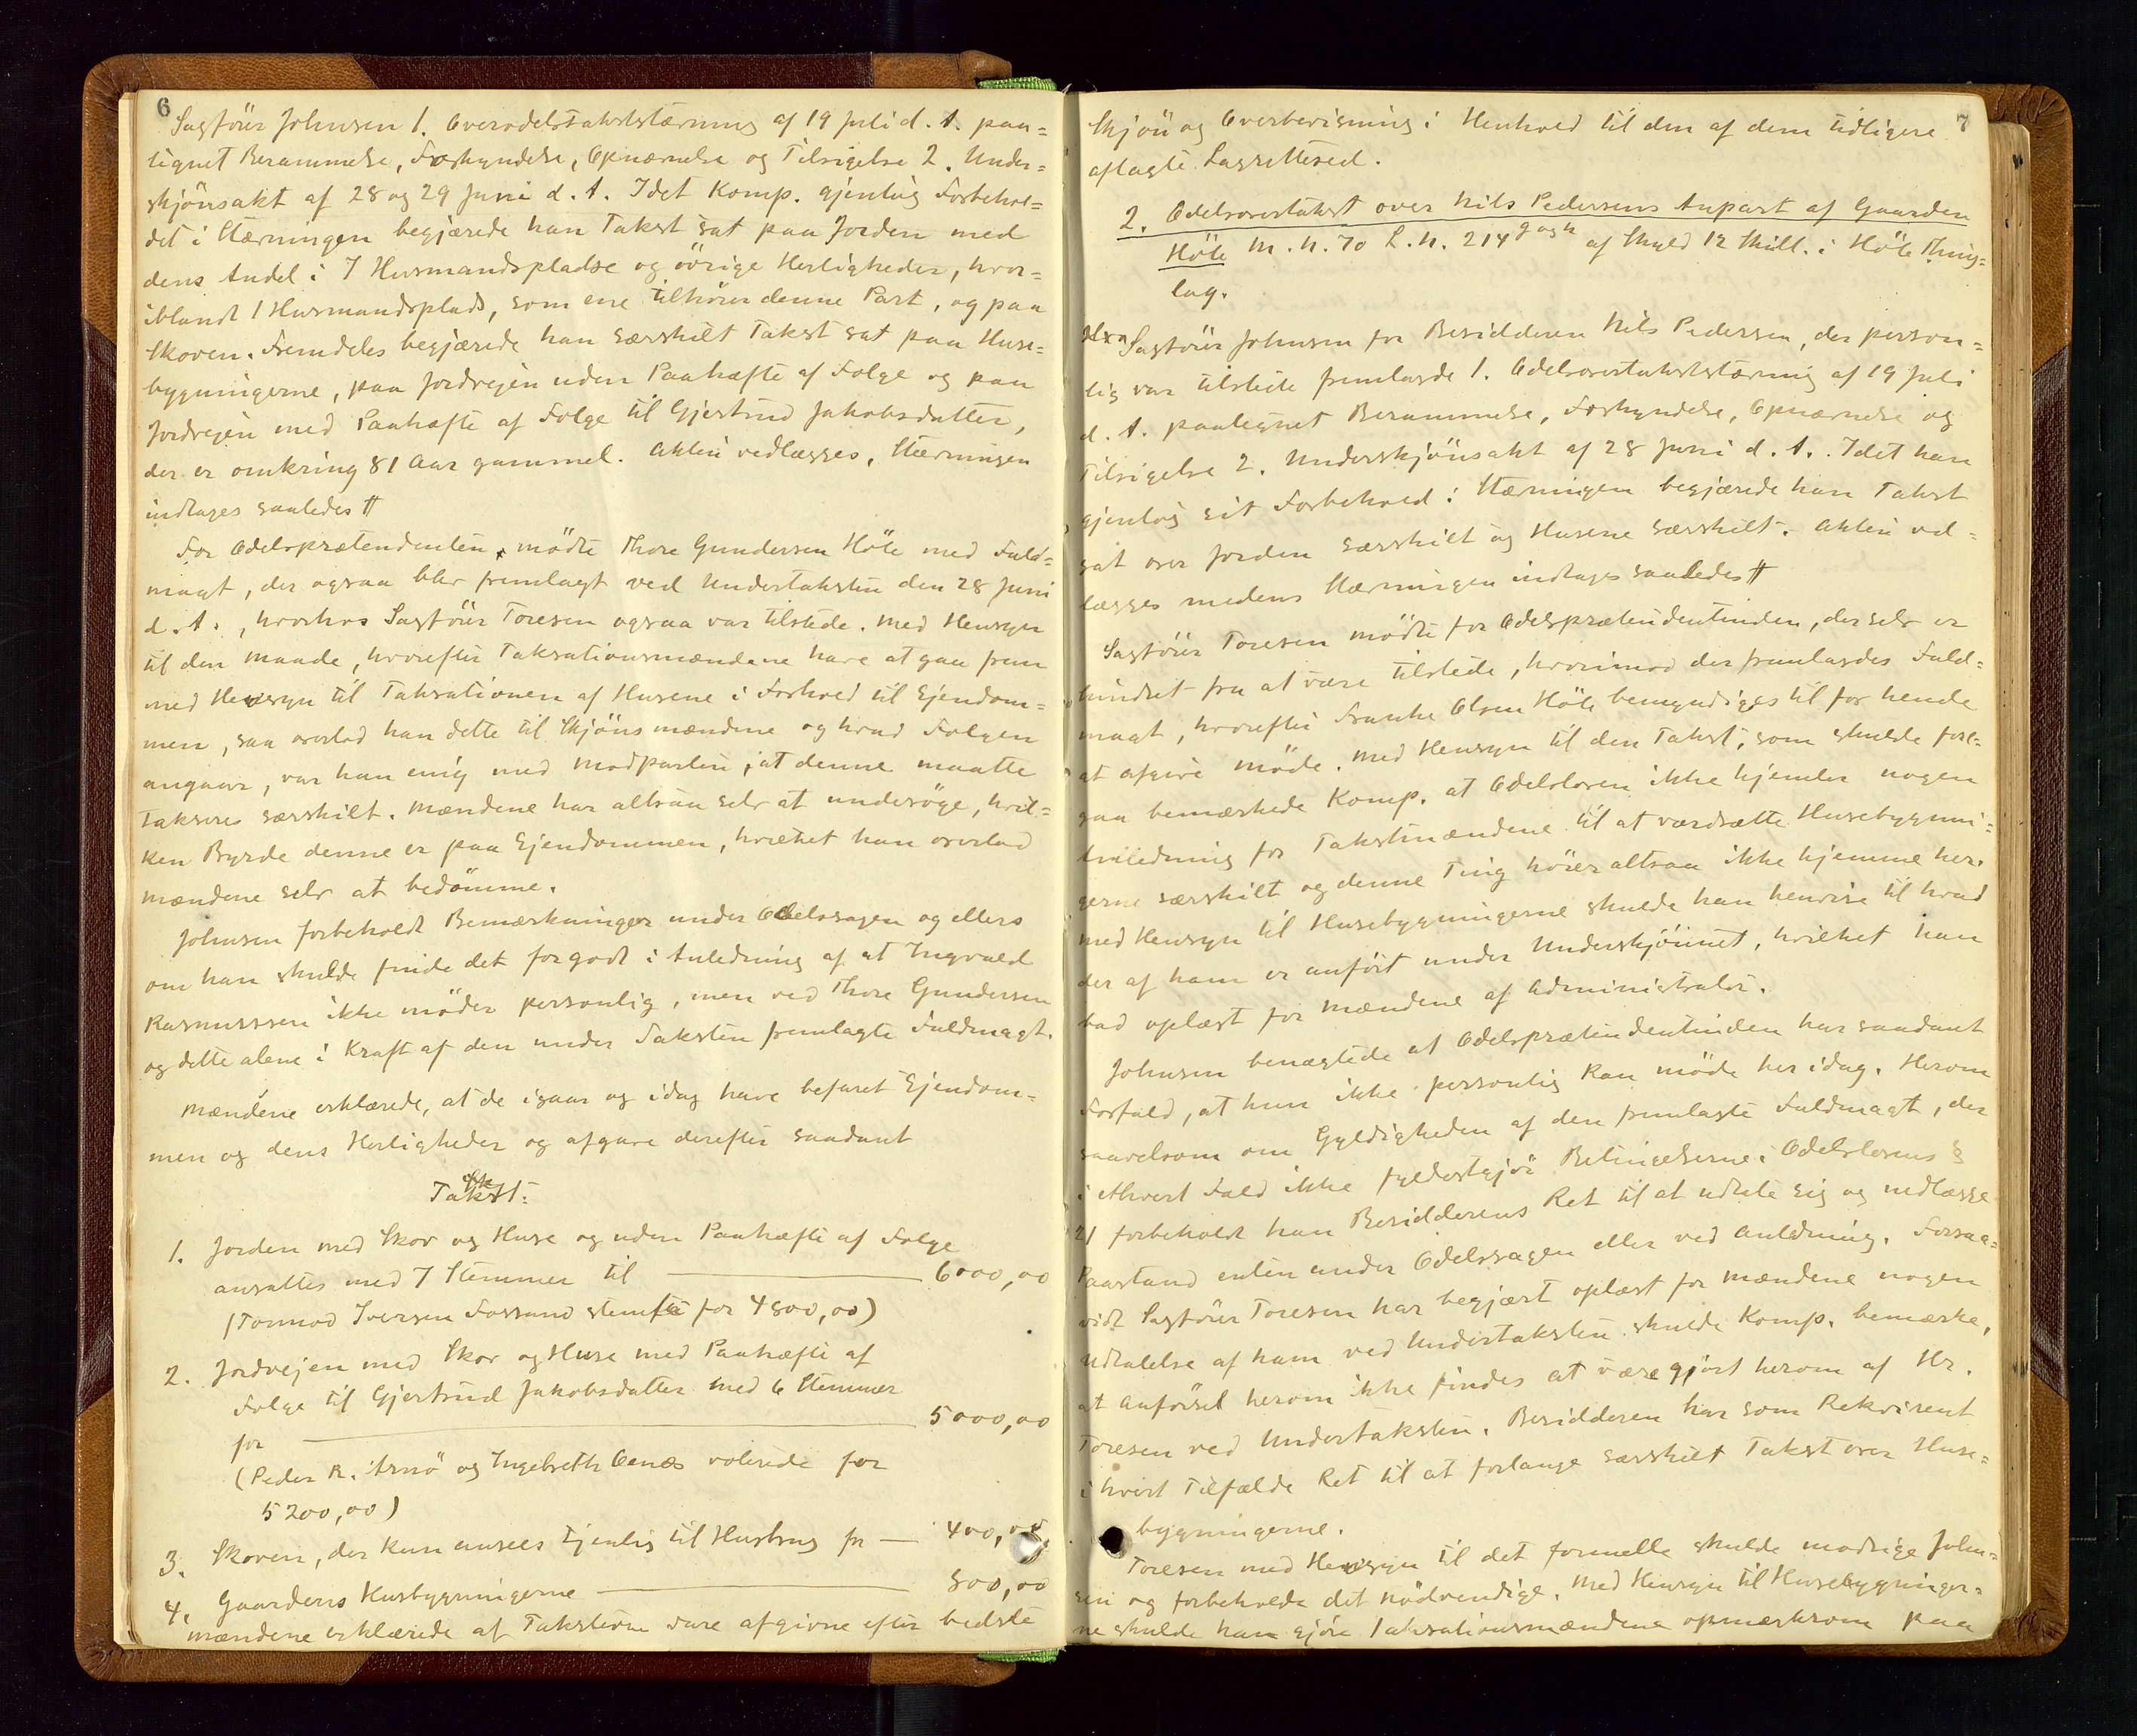 6
Sagförer Johnsen 1. Overodelstakststævning af 19 Juli d. A. paa=
tegnet Berammelse, Forkyndelse, Opnævnelse og Tilsigelse 2. Under=
skjönsakt af 28 og 29 Juni d. A. Idet Komp. gjentog Forbehol=
det i Stævningen begjærede han Takst sat paa Jorden med
dens Andel i 7 Husmandspladse og övrige Herligheder, hvor=
iblandt 1 Husmandsplads, som ene tilhörer denne Part, og paa
Skoven. Fremdeles begjærede han særskilt Takst sat paa Huse=
bygningerne, paa Jordvejen uden Paahæfte af Folge og paa
Jordvejen med Paahæfte af Folge til Gjertrud Jakobsdatter,
der er omkring 81 Aar gammel. Akten vedlægges, Stævningen
indtages saaledes #
For Odelsprætendenten mödte Thore Gundersen Höle med Fuld=
magt, der ogsaa blev fremlagt ved Undertaksten den 28 Juni
d. A., hvorhos Sagförer Toresen ogsaa var tilstede. Med Hensyn
til den Maade, hvorefter Taksationsmændene have at gaa frem
med Hensyn til Taksationen af Husene i Forhold til Ejendom=
men, saa overlod han dette til Skjönsmændene og hvad Folgen
angaar, var han enig med Modparten, at denne maatte
takseres særskilt. Mændene har altsaa selv at undersöge, hvil=
ken Byrde denne er paa Ejendommen, hvilket han overlod
Mændene selv at bedömme.
Johnsen forbeholdt Bemærkninger under Odelssagen og ellers
om han skulde finde det for godt i Anledning af at Ingvald
Rasmusssen ikke möder personlig, men ved Thore Gundersen
og dette alene i Kraft af den under Taksten fremlagte Fuldmagt.
Mændene erklærede, at de igaar og idag have befaret Ejendom=
men og dens Herligheder og afgave derefter saadant
Takst:
1. Jorden med Skov og Huse og uden Paahæfte af Folge
ansattes med 7 Stemmer til — 6000,00
(Tormod Iversen Fossand stemte for 4800,00)
2. Jordvejen med Skov og Huse med Paahæfte af
Folge til Gjertrud Jakobsdatter med 6 Stemmer
for — 5000,00
(Peder R. Arnö og Ingebreth Oenæs voterede for
5200,00)
3. Skoven, der kun ansees tjenlig til Husbrug for — 400,00
4. Gaardens Husbygningerne — 800,00
Mændene erklærede at Taksterne vare afgivne efter bedste
7
Skjön og Overbevisning i Henhold til den af dem tidligere
aflagte Lagretteed.
2. Odelsovertakst over Nils Pedersens Anpart af Gaarden
Höle M. N. 70 L. N. 214 g og h af Skyld 12 Skill. i Höle Thing=
lag.
Sagförer Johnsen for Besidderen Nils Pedersen, der person=
lig var tilstede fremlagde 1. Odelsovertakststævning af 19 Juli
d. A. paategnet Berammelse, Forkyndelse, Opnævnelse og
Tilsigelse 2. Underskjönsakt af 28 Juni d. A. Idet han
gjentog sit Forbehold i Stævningen begjærede han Takst
sat over Jorden særskilt og Husene særskilt. Akten ved=
lægges medens Stævningen indtages saaledes #
Sagförer Toresen mödte for Odelsprætendentinden, der selv er
hindret fra at være tilstede, hvorimod der fremlagdes Fuld=
magt, hvorefter Franke Olsen Höle bemyndiges til for hende
at afgive Möde. Med Hensyn til den Takst, som skulde fore=
gaa bemærkede Komp. at Odelsloven ikke hjemler nogen
Anledning for Takstmændene til at værdsætte Husebygnin=
gerne særskilt og denne Ting hörer altsaa ikke hjemme her.
Med Hensyn til Husebygningerne skulde han henvise til hvad
der af ham er anfört under Underskjönnet, hvilket han
bad oplæst for Mændene af Administrator.
Johnsen benægtede at Odelsprætendentinden har saadant
Forfald, at hun ikke personlig kan möde her idag. Herom
saavelsom om Gyldigheden af den fremlagte Fuldmagt, der
i ethvert Fald ikke fyldestgjör Betingelserne i Odelslovens §
21 forbeholdt han Besidderens Ret til at udtale sig og nedlægge
Paastand enten under Odelssagen eller ved Anldning. Forsaa=
vidt Sagförer Toresen har begjært oplæst for Mændene nogen
Udtalelse af ham ved Undertaksten skulde Komp. bemærke,
at Anförsel herom ikke findes at være gjort herom af Hr.
Toresen ved Undertaksten. Besidderen har som Rekvirent
i hvert Tilfælde Ret til at forlange særskilt Takst over Huse=
bygningerne.
Toresen med Hensyn til det formelle skulde modsige John=
sen og forbeholde det nödvendige. Med Hensyn til Husebygninger=
ne skulde han gjöre Taksationsmændene opmærksom paa